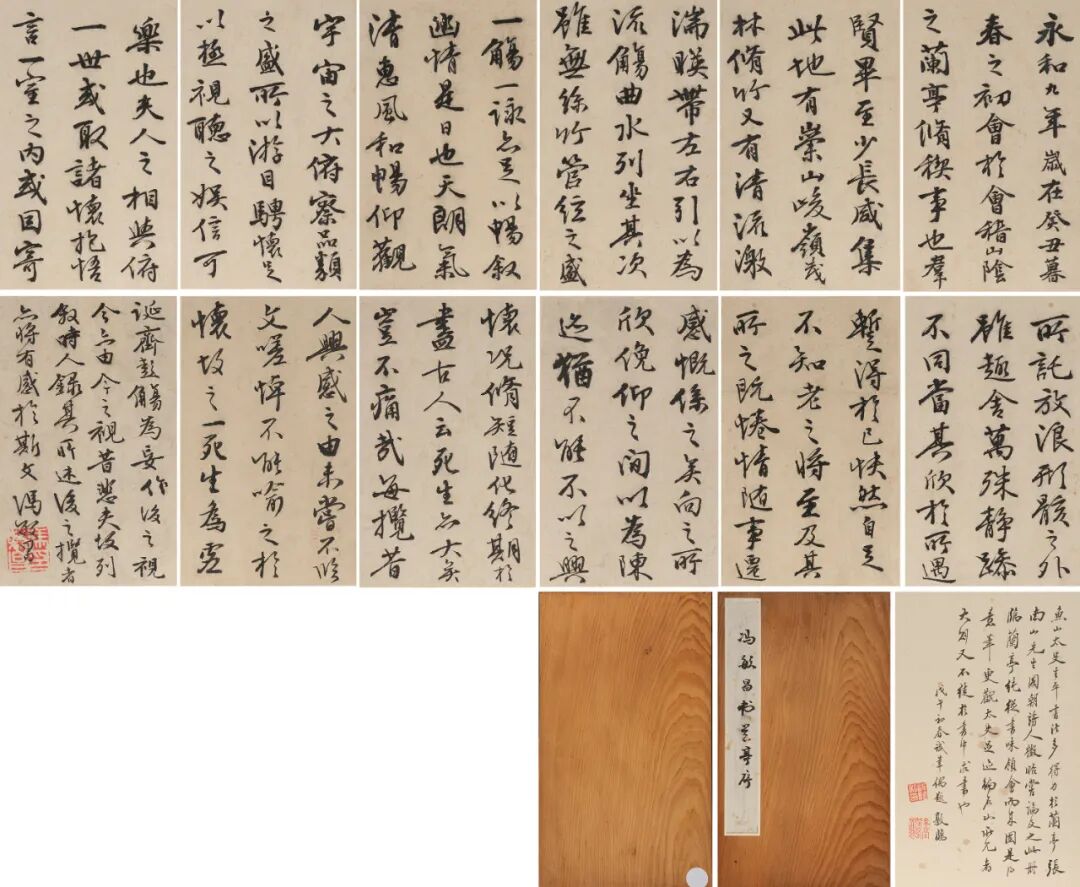 永和九年歲在癸丑暮
春之初會於會稽山陰
之蘭亭脩稧事也羣
賢畢至少長咸集
此地有崇山峻嶺茂
林脩竹又有清流激
湍暎帶左右引以為
流觴曲水列坐其次
雖無絲竹管弦之盛
一觴一詠亦足以暢叙
幽情是日也天朗氣
清惠風和暢仰觀
宇宙之大俯察品類
之盛所以游目騁懷足
以極視聽之娛信可
樂也夫人之相與俯
一世或取諸懷抱悟
言一室之內或因寄
所託放浪形骸之外
雖趣舍萬殊靜躁
不同當其欣於所遇
暫得於己怏然自足
不知老之將至及其
所之既惓情隨事遷
感慨係之矣向之所
欣俛仰之間以為陳
迹猶不能不以之興
懷況脩短隨化終期於
盡古人云死生亦大矣
豈不痛哉每攬昔
人興感之由未嘗不臨
文嗟悼不能喻之於
懷故之一死生為虛
誕齊彭觴為妄作後之視
今亦由今之視昔悲夫故列
叙時人錄其所述後之攬者
亦將有感於斯文馮敏昌
馮敏昌書蘭亭序
魚山太史生平書法多得力於蘭亭張
南山先生國朝詩人徵略嘗論及之此冊
臨蘭亭純從書味領會而來固是得
意筆更觀太史遊迹徧名山所見者
大自又不徒於書中求書也
戊午初春 偶題